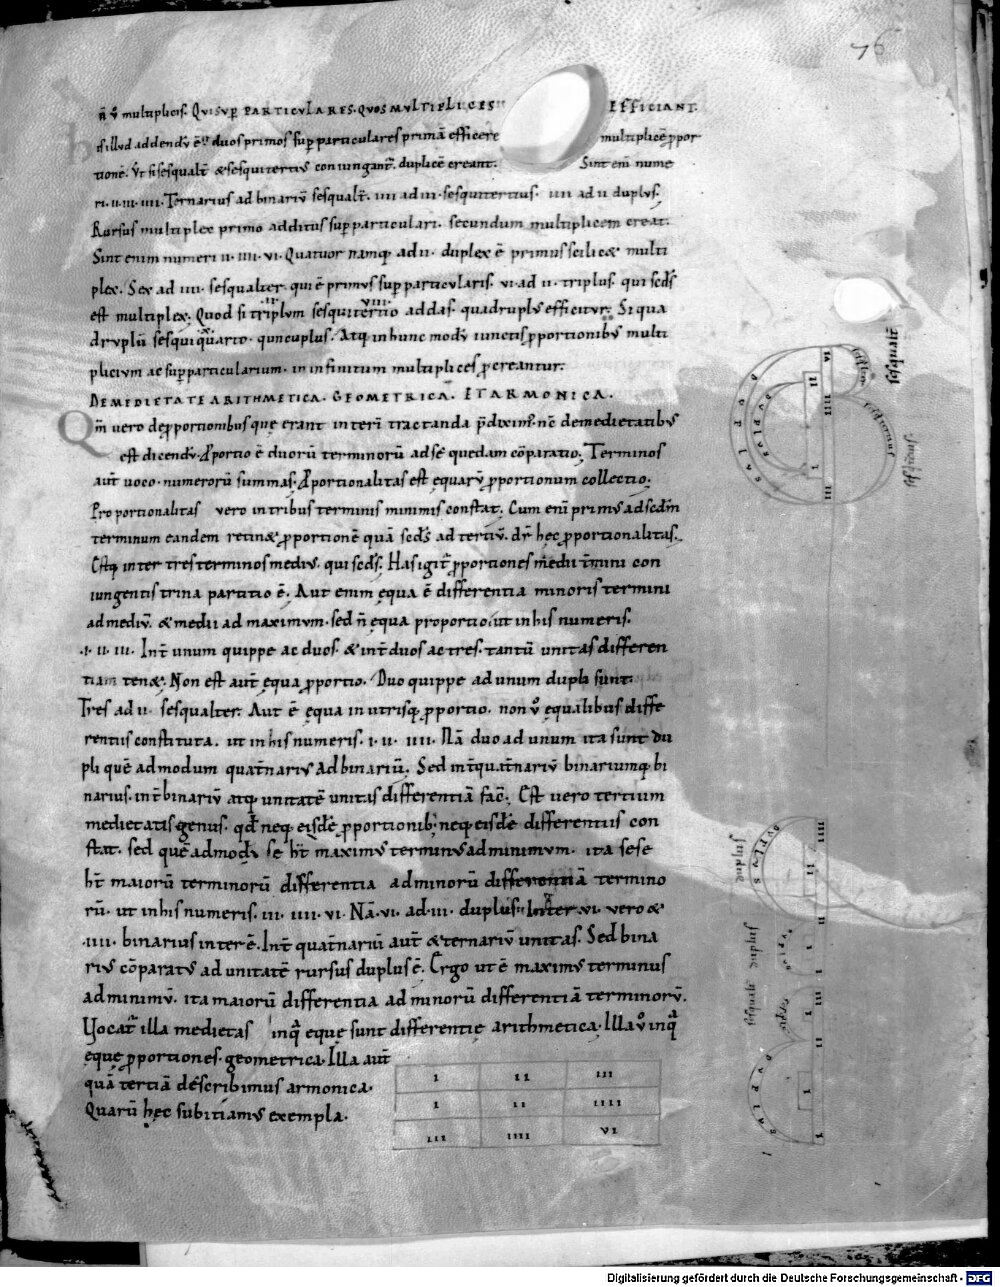 76
n̄ v̊ multiplicis. QVISVP̄ PARTICVLARES. QVOS MVLTIPLICES EFFICIANT.
Et illud addendū ē. duos primos sup̄particulares primā efficere multiplicē p̱por
tionē. Ut si sesqualt̄ & sesquitertius coniungant̄. duplicē creant. Sint eni̅ nume
ri. ii. iii. iiii. Ternarius ad binariū sesqualt̄. iiii ad iii. sesquitertius. iiii ad ii duplus.
Rursus multiplex primo additus sup̄particulari. secundum multiplicem creat.
Sint enim numeri ii. iiii. vi. Quatuor namq; ad ii. duplex ē primus scilic& multi
plex. Sex ad iiii. sesqualter. qui ē primus sup̄particularis. vi ad ii. triplus. qui scd̄s
est multiplex. Quod si triplum sesquitertio addas. quadruplus efficitur. Si qua
druplū sesquiquarto. quincuplus. Atq; in hunc modū iunctis p̱portionibus multi
plicium ac sup̄particularium. in infinitum multiplices p̱creantur.
DE MEDIETATE ARITHMETICA. GEOMETRICA. ET ARMONICA.
Qm̄ vero de p̱portionibus que erant interī tractanda p̄diximꝰ. nc̄ de medietatibus
est dicendū. P̱portio ē duorū terminorū ad sē quedam cōparatio. Terminos
aut̄ uoco. numerorū summas. P̱portionalitas est ęquarū p̱portionum collectio.
Proportionalitas vero in tribus terminis minimis constat. Cum eni̅ primus ad scd̄m
terminum eandem retin& p̱portionē quā scd̄s ad tertiū. dr̄ hęc p̱portionalitas.
Estq; inter tres terminos medius. qui scd̄s. Has igit̄ p̱portiones medii t̄mini con
iungentis trina partitio ē. Aut enim ęqua ē differentia minoris termini
ad mediū. & medii ad maximum. sed n̄ ęqua proportio. ut in his numeris.
.i. ii. iii. Int̄ unum quippe ac duos. & int̄ duos ac tres. tantū unitas differen
tiam ten&. Non est aut̄ ęqua p̱portio. Duo quippe ad unum dupli sunt.
Tres ad ii. sesqualter. Aut ē ęqua in utrisq; p̱portio. non v̊ equalibus diffe
rentiis constituta. ut in his numeris. i. ii. iiii. Nā duo ad unum ita sunt du
pli quē admodum quat̄narius ad binariū. Sed int̄ quat̄nariū binariumq; bi
narius. int̄ binariū atq; unitatē unitas differentiā fac̄. Est vero tertium
medietatis genus. qd̄ neq; eisdē p̱portionib; neq; eisdē differentiis con
stat. sed quē admodū se ht̄ maximus terminus ad minimum. ita sese
ht̄ maiorū terminorū differentia ad minorū differentiā termino
rū. ut in his numeris. iii. iiii. vi. Nā. vi. ad. iii. duplus. Inter. vi. vero &
.iiii. binarius inter ē. Int̄ quat̄nariū aut̄ & ternariū unitas. Sed bina
rius cōparatus ad unitatē rursus duplus ē. Ergo ut ē maximus terminus
ad minimū. ita maiorū differentia ad minorū differentiā terminorū.
Uocat̄ illa medietas in qͣ eque sunt differentie arithmetica. Illa v̊ in qͣ
ęque p̱portiones. geometrica. Illa aut̄
quā tertiā describimus armonica.
Quarū hęc subitiamus exempla.
I II III
I II IIII
III IIII VI
sesqualt̄
DUPLUS
VI
II
IIII
I
IIII
DUPLUS
II
I
III
II
I
DUPLUS
Digitalisierung gefördert durch die Deutsche Forschungsgemeinschaft - DFG